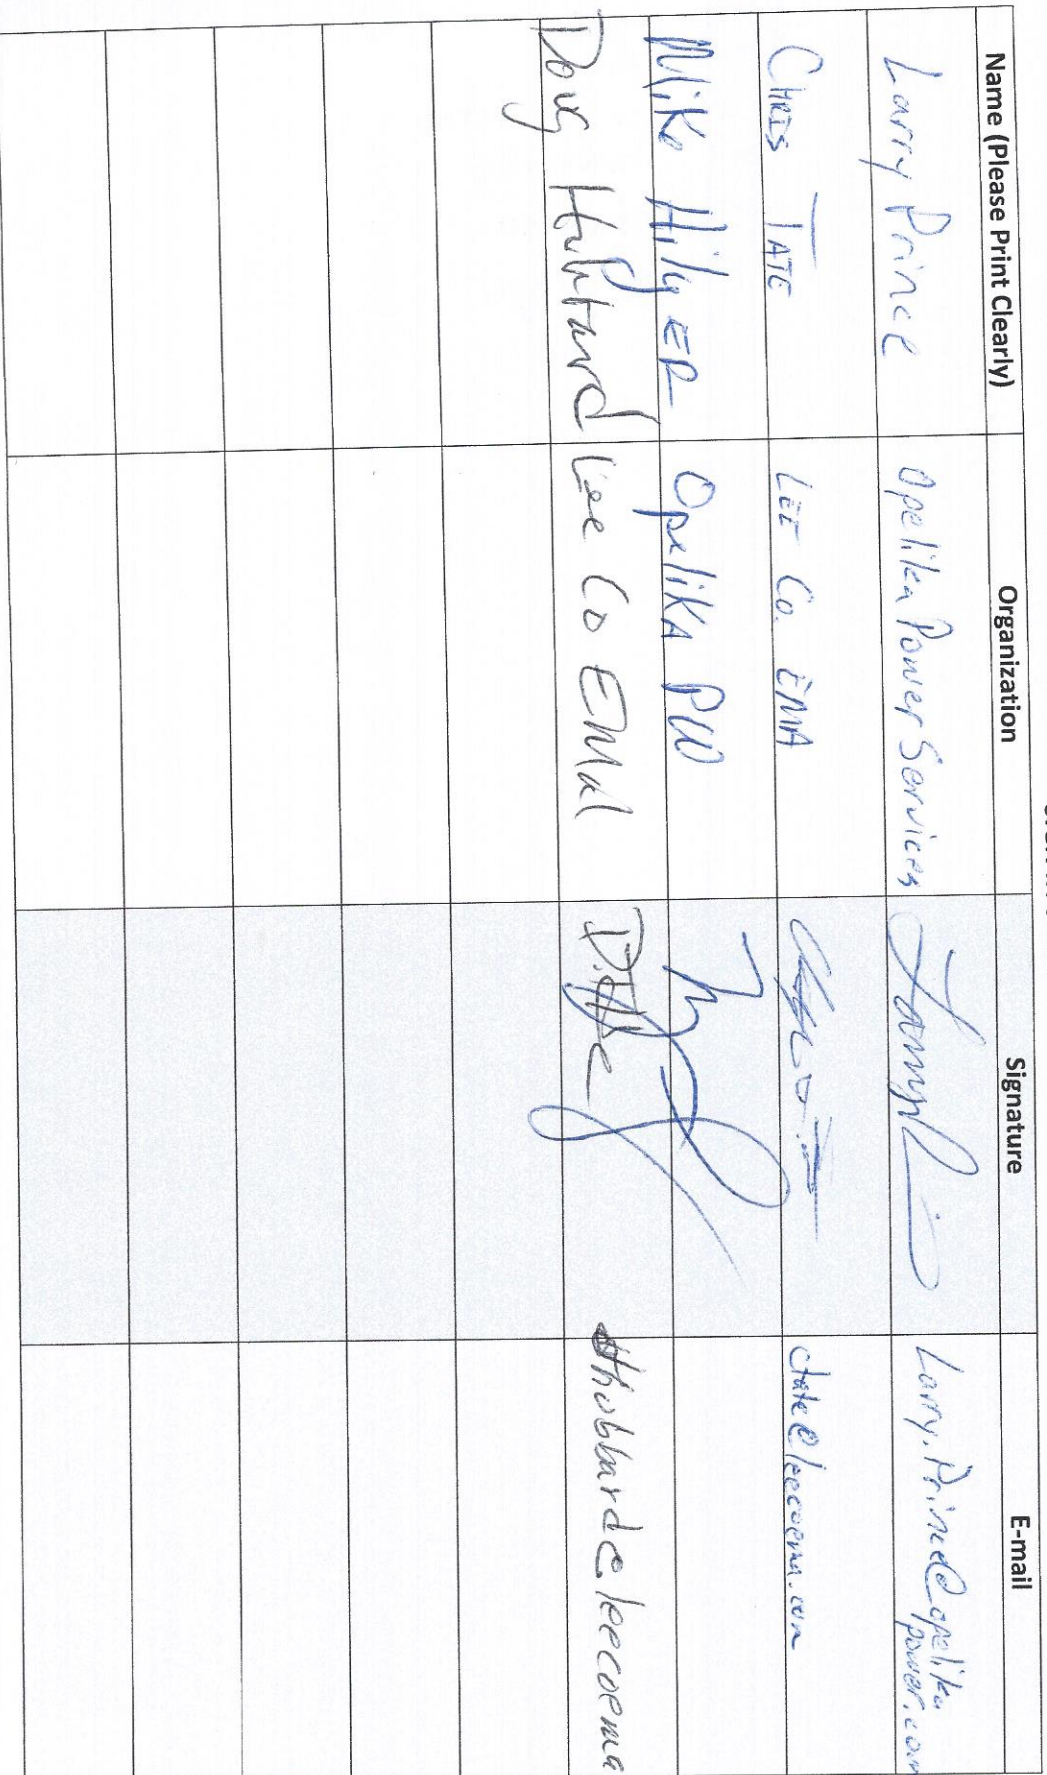 Name (Please Print Clearly) Organization Signature E-mail
Larry Prince Opelika Power Services Larry.Prince@opelika
power.com
CHRIS TATE LEE Co. EMA ctate@leecoema.com
Mike HilyER OpeliKA PW
Doug Hubbard Lee Co EMA dhubbard@leecoema